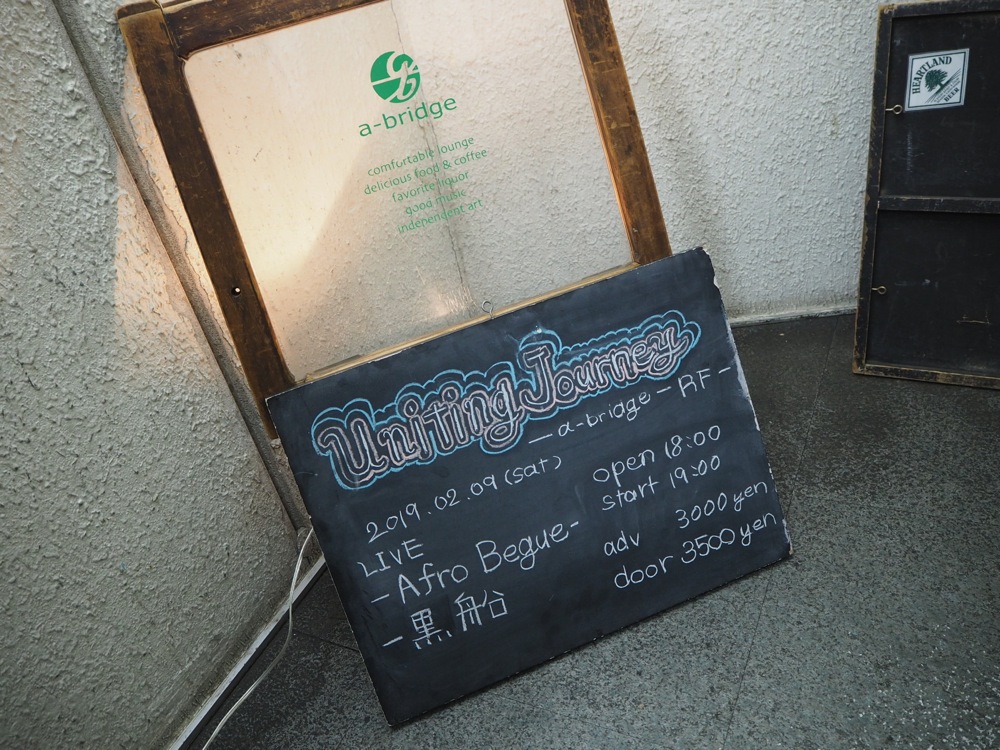 a-bridge
comfortable lounge
delicious food & coffee
favorite liquor
good music
indenendent art
HEARTLAND
BEER
Uniting Journey
— a-bridge — RF -
2019.02.09 (sat)
LIVE
- Afro Begue-
- 黒船
open 18:00
start 19:00
adv 3000 yen
door 3500 yen